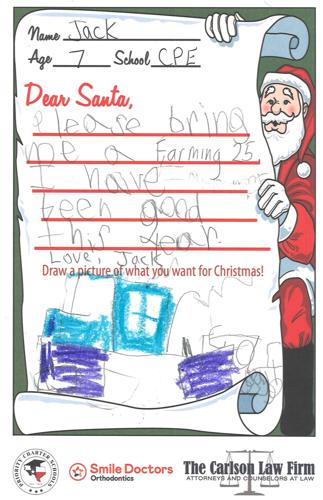 Name Jack
Age 7 School CPE
Dear Santa,
Please bring
me a Farming 25
I have
been good
this year
Love, Jack
Draw a picture of what you want for Christmas!
PRIORITY CHARTER SCHOOLS
Smile Doctors
Orthodontics
The Carlson Law Firm
ATTORNEYS AND COUNSELORS AT LAW